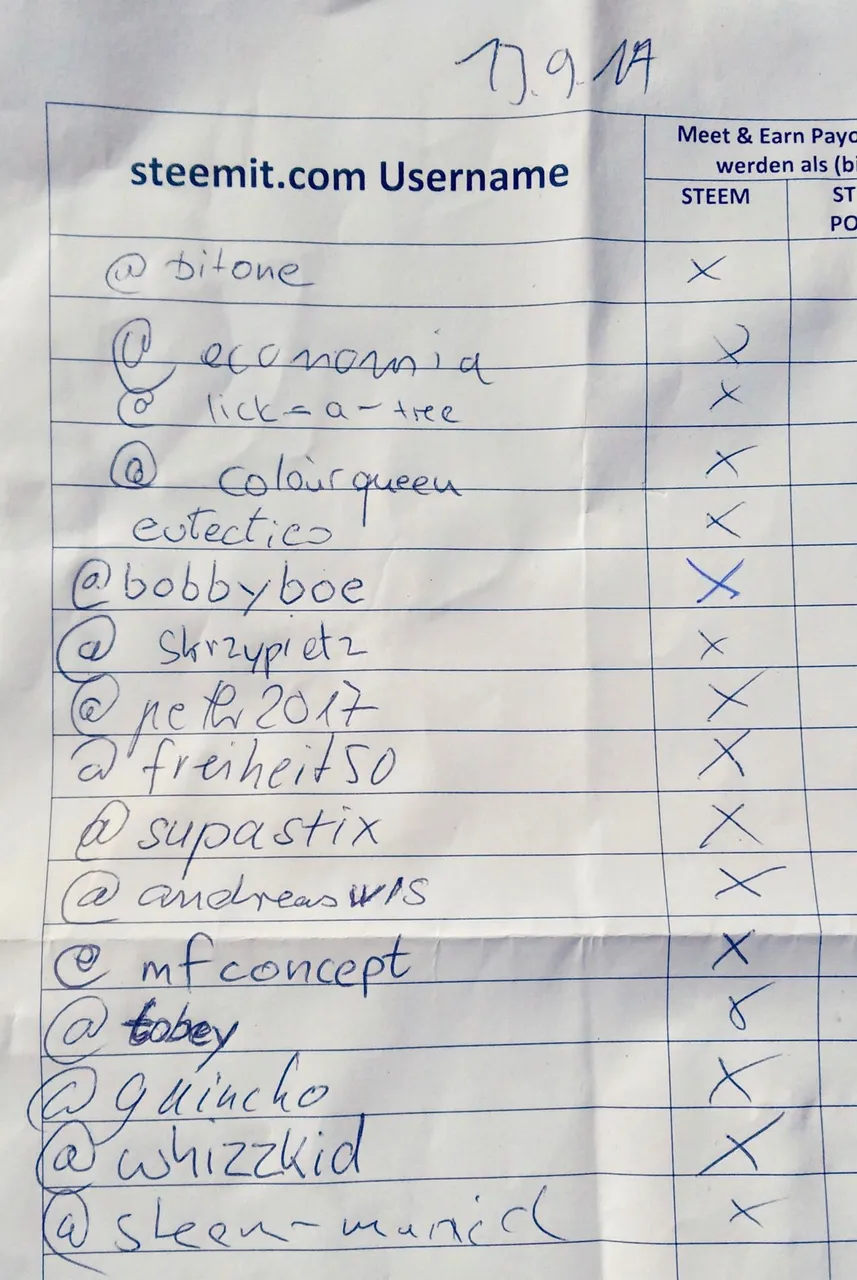 13.9.17
Meet & Earn Payo
werden als (bi
steemit.com Username
STEEM
ST
PO
@ bitone X
@ economia X
@ lick-a-tree X
@ colourqueen X
eutectico X
@bobbyboe X
@ skrzypietz X
@ peter2017 X
@ freiheit50 X
@ supastix X
@ andreaswis X
@ mfconcept X
@ tobey X
@ guincho X
@ whizzkid X
@ steem-munich X